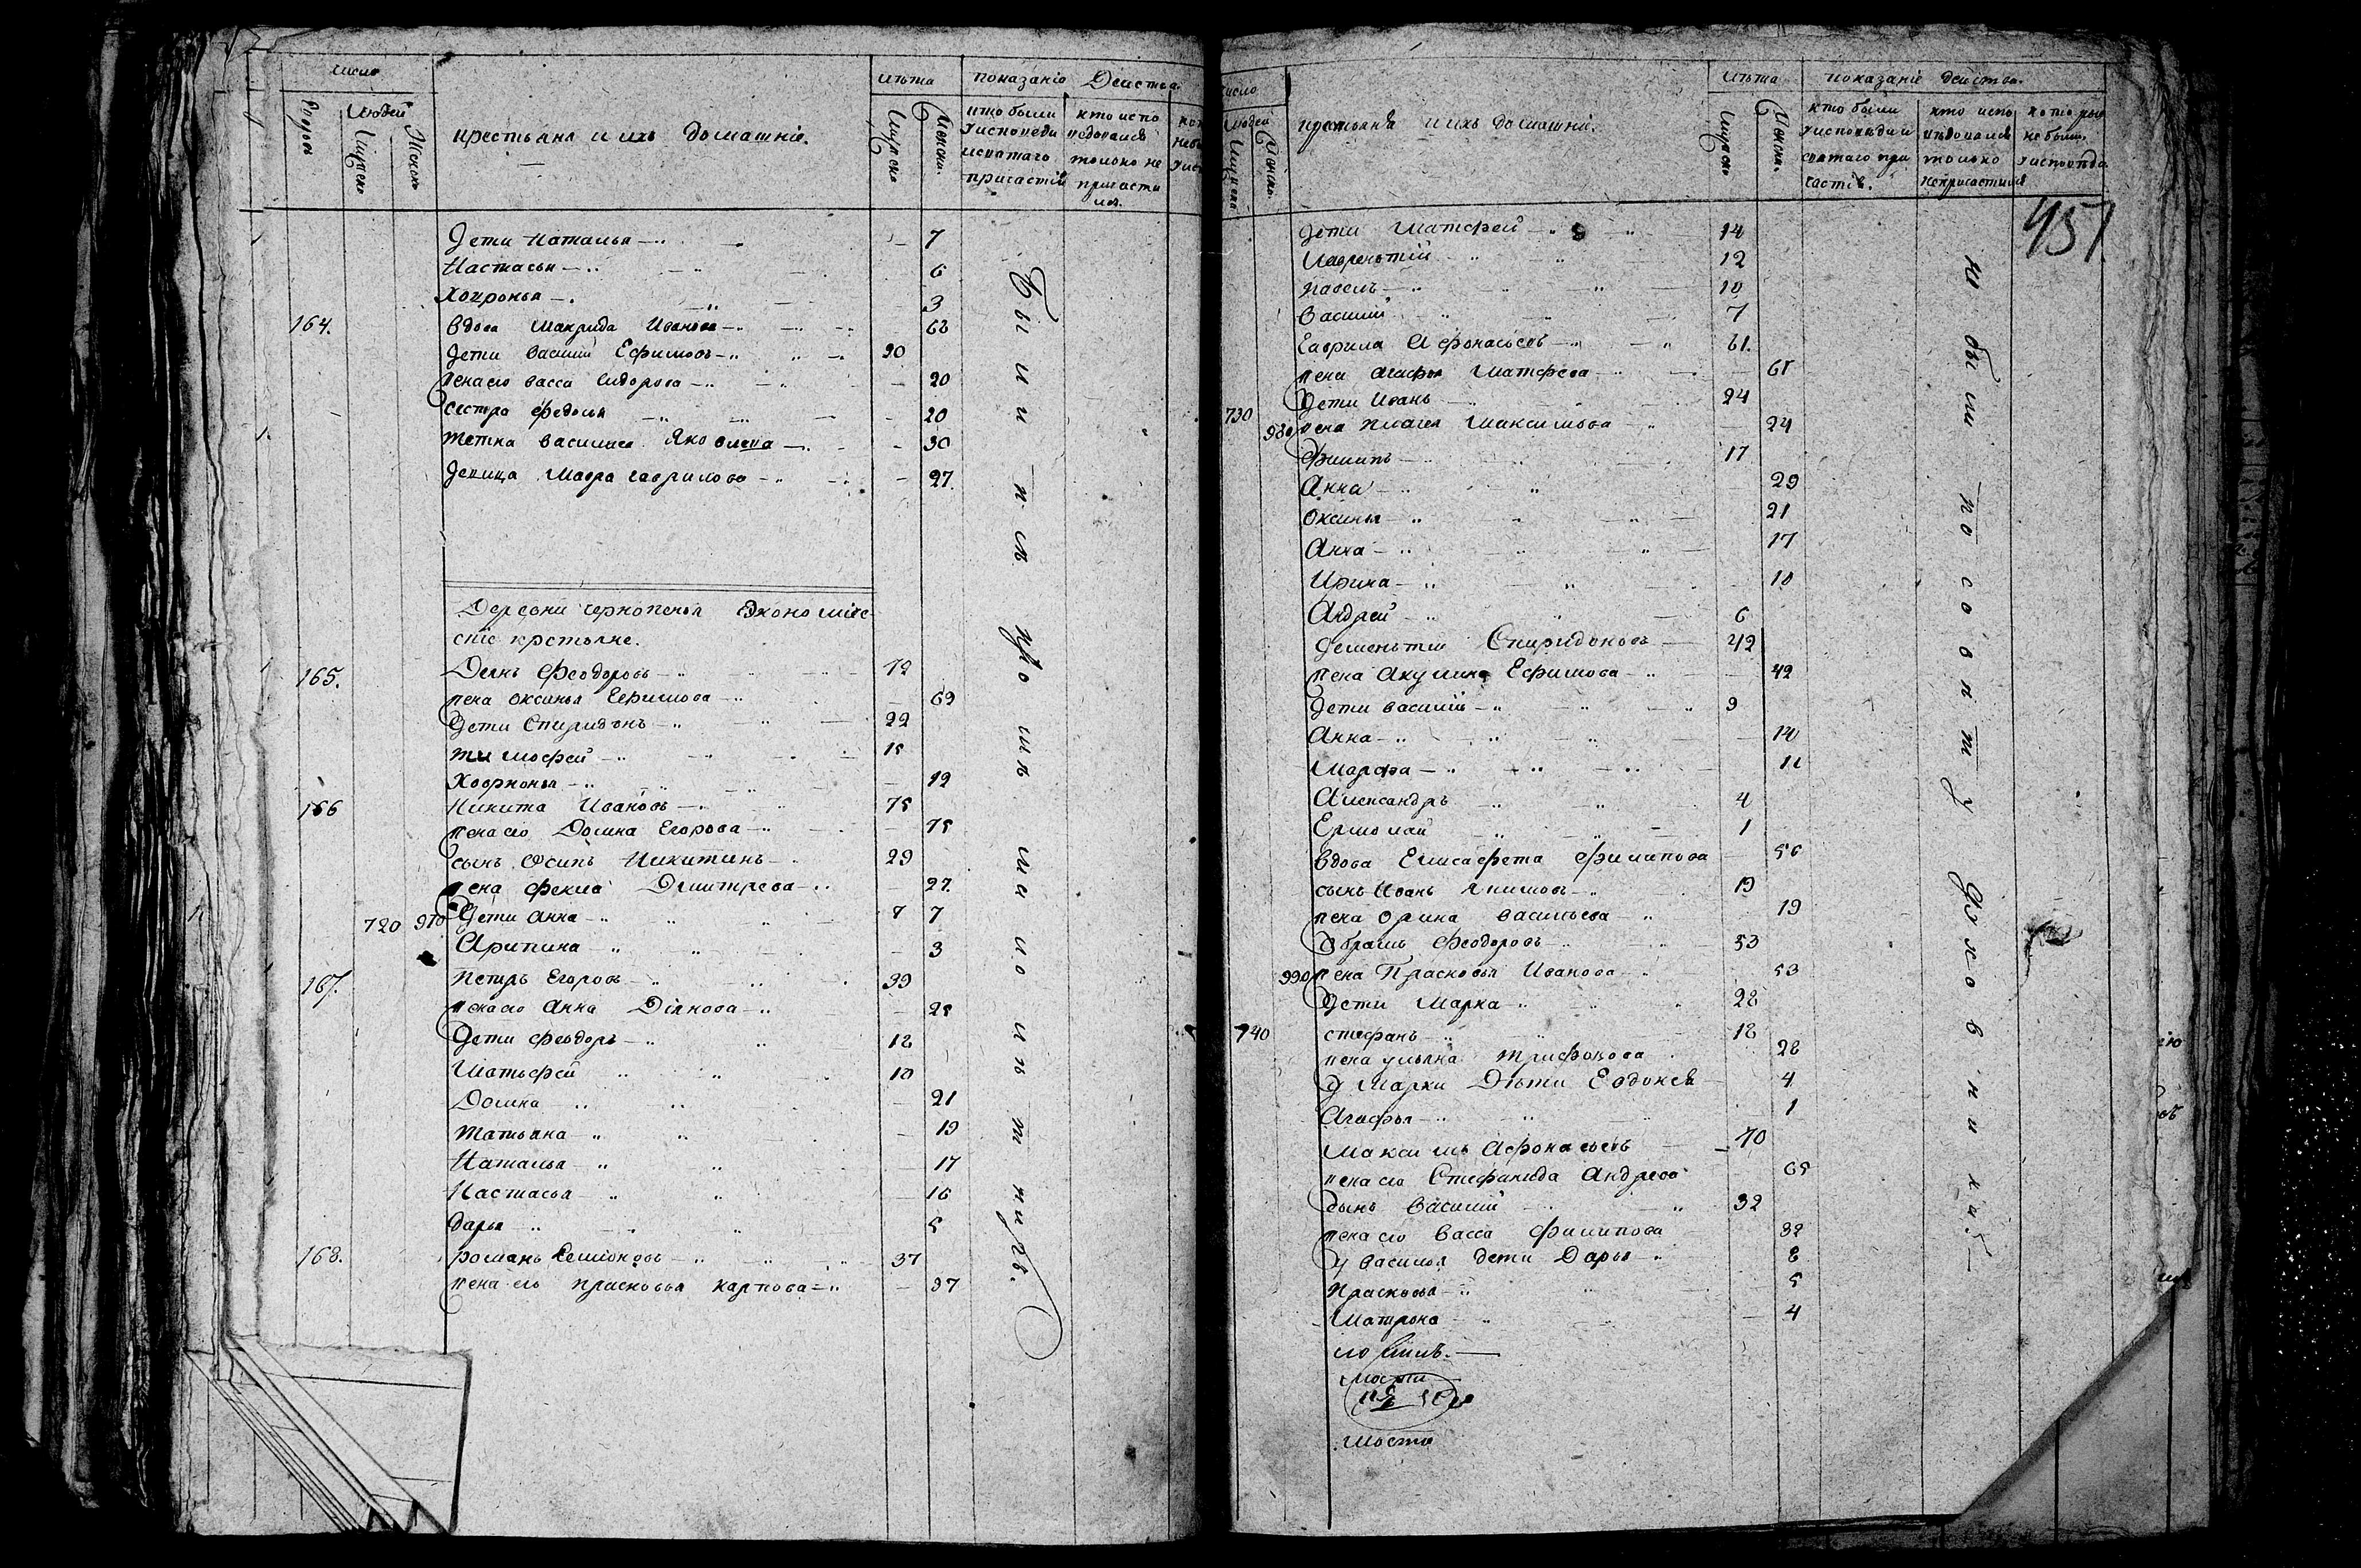 число
дворовъ
Людей
Мужеско
Женско
крестьяня и ихъ домашніе.
лѣта
Мужеско
Женско.
показаніе Действа
кто были
уисповеди
исвятаго
причастія
кто испо
ведовался
только не
причасти
лся.
Дети Наталья 7
Настасья 6
Ховронья 3
164. Вдова Макрида Иванова 68
Дети василий Ефимовъ 20
Жена его васса Сидорова 20
сестра Федосья 20
тетка василиса Яковлева 30
Девица Мавра гаврилова 27.
Деревни чернопенья Экономиче-
скіе крестьяне.
165. Феодоровъ 72
жена оксинья Ефимова 69
Дети Спиридонъ 22
тимофей 15
Ховронья 12
166 Никита Ивановъ 75
жена его Домна Егорова 75
сынъ Осипъ Никитинъ 29
жена фекла Дмитрева 27.
720 970 Дети анна 7 7
Арипина 3
167. Петръ Егоровъ 39
жена его анна 25
Дети Феодоръ 12
Матьфей 10
Домна 21
татьяна 19
Наталья 17
Настасья 16
дарья 5
168. романъ Семіоновъ 37
жена его прасковья карпова 37
Были пѣ
число
Людей
Мужеска
Женска.
крестьяня и ихъ домашні.
лѣта
Мужеско
Женско.
показаніе действа.
кто были
уисповеди и
святаго при
частія.
кто испо
ведовался
только
непричастился
которыя
не были
уисповеда
451
Дети Матфей 14
Лаврентий 12
павелъ 10
Василий 7
Гаврила Афонасьевъ 61.
жена агафья Матфева 61
730 Дети Иванъ 24
980 жена Максимова 24
Филипъ 17
Анна 29
Оксинья 21
Анна 17
Ирина 10
Андрей 6
Дементий Спиридоновъ 42
жена Акулина Ефимова 42
Дети василій 9
Анна 14
Марфа 11
Александръ 4
Ермолай 1
Вдова Елисафета филипова 56
сынъ Иванъ 19
жена орина васильева 19
Абрамъ Феодоровъ 53
990 жена Прасковья Иванова 53
Дети Марка 28
740 стефанъ 18
жена ульяна трифонова 28
У Марки Дѣти Евдокея 4
Агафья 1
Максимъ Афонасьевъ 70
жена его Стефанида Андрева 65
сынъ Василий 32
жена его Васса филипова 32
У Василья дети Дарья 8
Прасковья 5
Матрона 4
не были по соопту духовника.